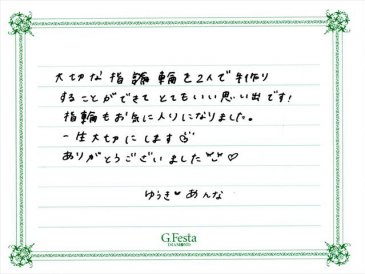 大切な指輪を2人で手作り
することができて とてもいい思い出です!
指輪もお気に入りになりました。
一生大切にします
ありがとうございました♡
ゆうき♡あんな
G.Festa
DIAMOND